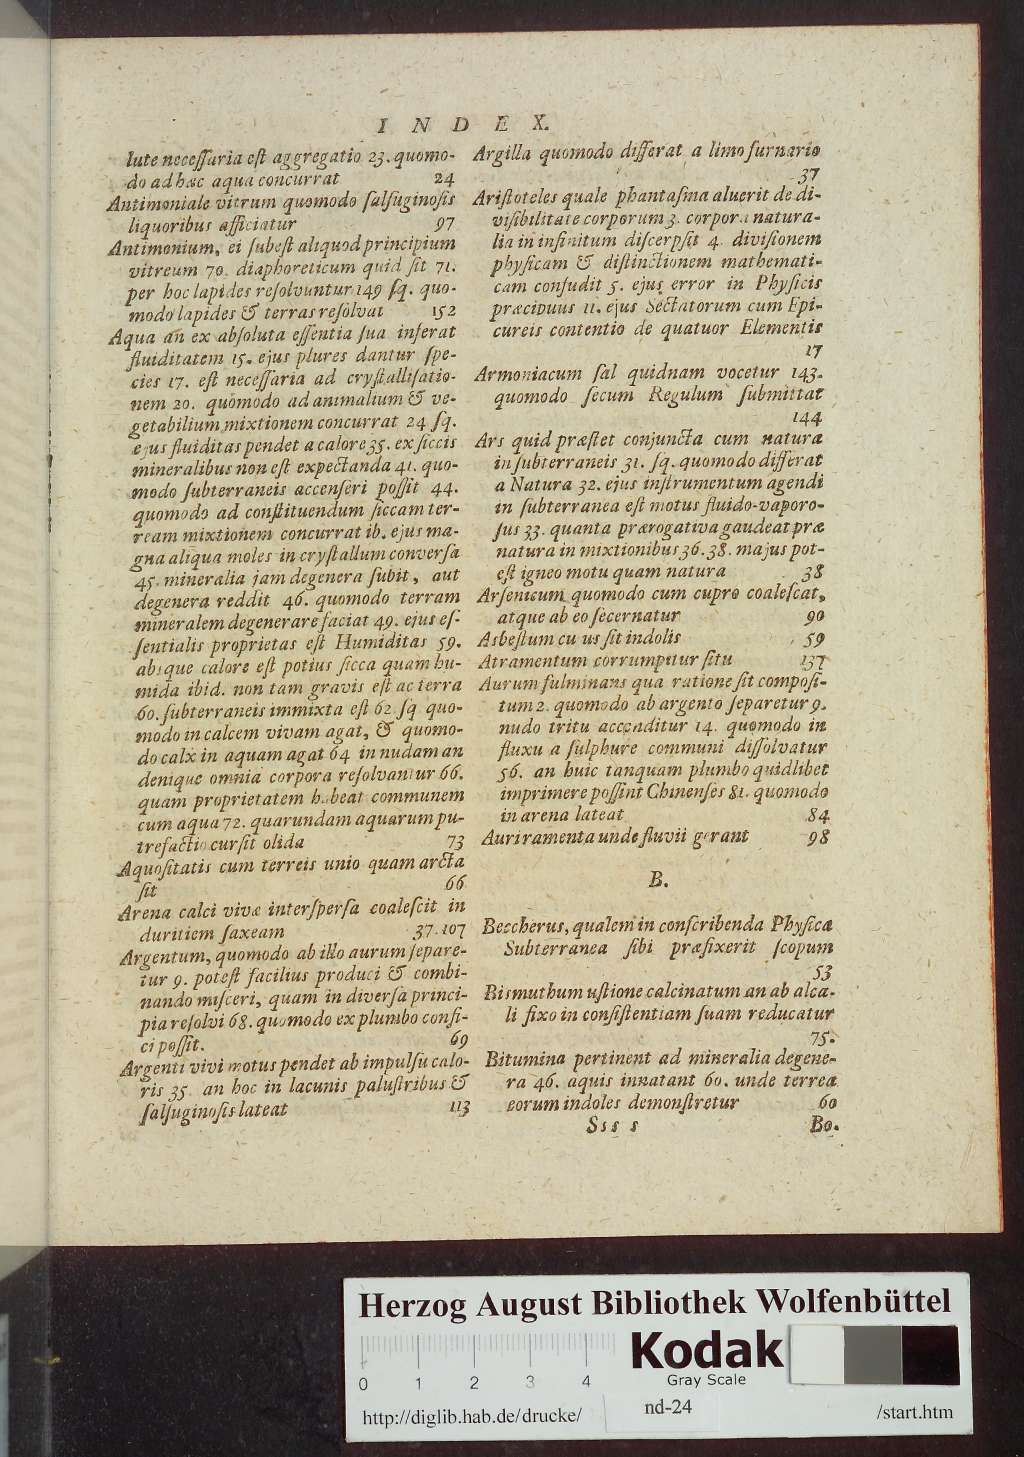 I N D E X.
lute neceſſaria eſt aggregatio 23. quomo-
do ad hæc aqua concurrat 24
Antimoniale vitrum quomodo ſalſuginoſis
liquoribus afficiatur 97
Antimonium, ei ſubeſt aliquod principium
vitreum 70. diaphoreticum quid ſit 71.
per hoc lapides reſolvuntur 149 ſq. quo-
modo lapides & terras reſolvat 152
Aqua an ex abſoluta eſſentia ſua inferat
fluiditatem 15. ejus plures dantur ſpe-
cies 17. eſt neceſſaria ad cryſtalliſatio-
nem 20. quomodo ad animalium & ve-
getabilium mixtionem concurrat 24 ſq.
ejus fluiditas pendet a calore 35. ex ſiccis
mineralibus non eſt expectanda 41. quo-
modo ſubterraneis accenſeri poſſit 44.
quomodo ad conſtituendum ſiccam ter-
ream mixtionem concurrat ib. ejus ma-
gna aliqua moles in cryſtallum converſa
45. mineralia jam degenera ſubit, aut
degenera reddit 46. quomodo terram
mineralem degenerare faciat 49. ejus eſ-
ſentialis proprietas eſt Humiditas 59.
absque calore eſt potius ſicca quam hu-
mida ibid. non tam gravis eſt ac terra
60. ſubterraneis immixta eſt 62 ſq. quo-
modo in calcem vivam agat, & quomo-
do calx in aquam agat 64 in nudam an
denique omnia corpora reſolvantur 66.
quam proprietatem habeat communem
cum aqua 72. quarundam aquarum pu-
trefactio cur ſit olida 73
Aquoſitatis cum terreis unio quam arcta
ſit 66
Arena calci vivæ interſperſa coaleſcit in
duritiem ſaxeam 37. 107
Argentum, quomodo ab illo aurum ſepare-
tur 9. poteſt facilius produci & combi-
nando miſceri, quam in diverſa princi-
pia reſolvi 68. quomodo ex plumbo confi-
ci poſſit. 69
Argenti vivi motus pendet ab impulſu calo-
ris 35. an hoc in lacunis paluſtribus &
ſalſuginoſis lateat 113
Argilla quomodo differat a limo furnario
37
Ariſtoteles quale phantaſma aluerit de di-
viſibilitate corporum 3. corpora natura-
lia in infinitum diſcerpſit 4. diviſionem
phyſicam & diſtinctionem mathemati-
cam confudit 5. ejus error in Phyſicis
præcipuus 11. ejus Sectatorum cum Epi-
cureis contentio de quatuor Elementis
17
Armoniacum ſal quidnam vocetur 143.
quomodo ſecum Regulum ſubmittat
144
Ars quid præſtet conjuncta cum natura
in ſubterraneis 31. ſq. quomodo differat
a Natura 32. ejus inſtrumentum agendi
in ſubterranea eſt motus fluido-vaporo-
ſus 33. quanta prærogativa gaudeat præ
natura in mixtionibus 36. 38. majus pot-
eſt igneo motu quam natura 38
Arſenicum quomodo cum cupro coaleſcat,
atque ab eo ſecernatur 90
Asbeſtum cu us ſit indolis 59
Atramentum corrumpitur ſitu 137
Aurum fulminans qua ratione ſit compoſi-
tum 2. quomodo ab argento ſeparetur 9.
nudo tritu accenditur 14. quomodo in
fluxu a ſulphure communi diſſolvatur
56. an huic tanquam plumbo quidlibet
imprimere poſſint Chinenſes 81. quomodo
in arena lateat 84
Auri ramenta unde fluvii gerant 98
B.
Beccherus, qualem in conſcribenda Phyſica
Subterranea ſibi præfixerit ſcopum
53
Bismuthum uſtione calcinatum an ab alca-
li fixo in conſiſtentiam ſuam reducatur
75.
Bitumina pertinent ad mineralia degene-
ra 46. aquis innatant 60. unde terrea
eorum indoles demonſtretur 60
Sss s Bo.
Herzog August Bibliothek Wolfenbüttel
Kodak
Gray Scale
0 1 2 3 4
http://diglib.hab.de/drucke/ nd-24 /start.htm